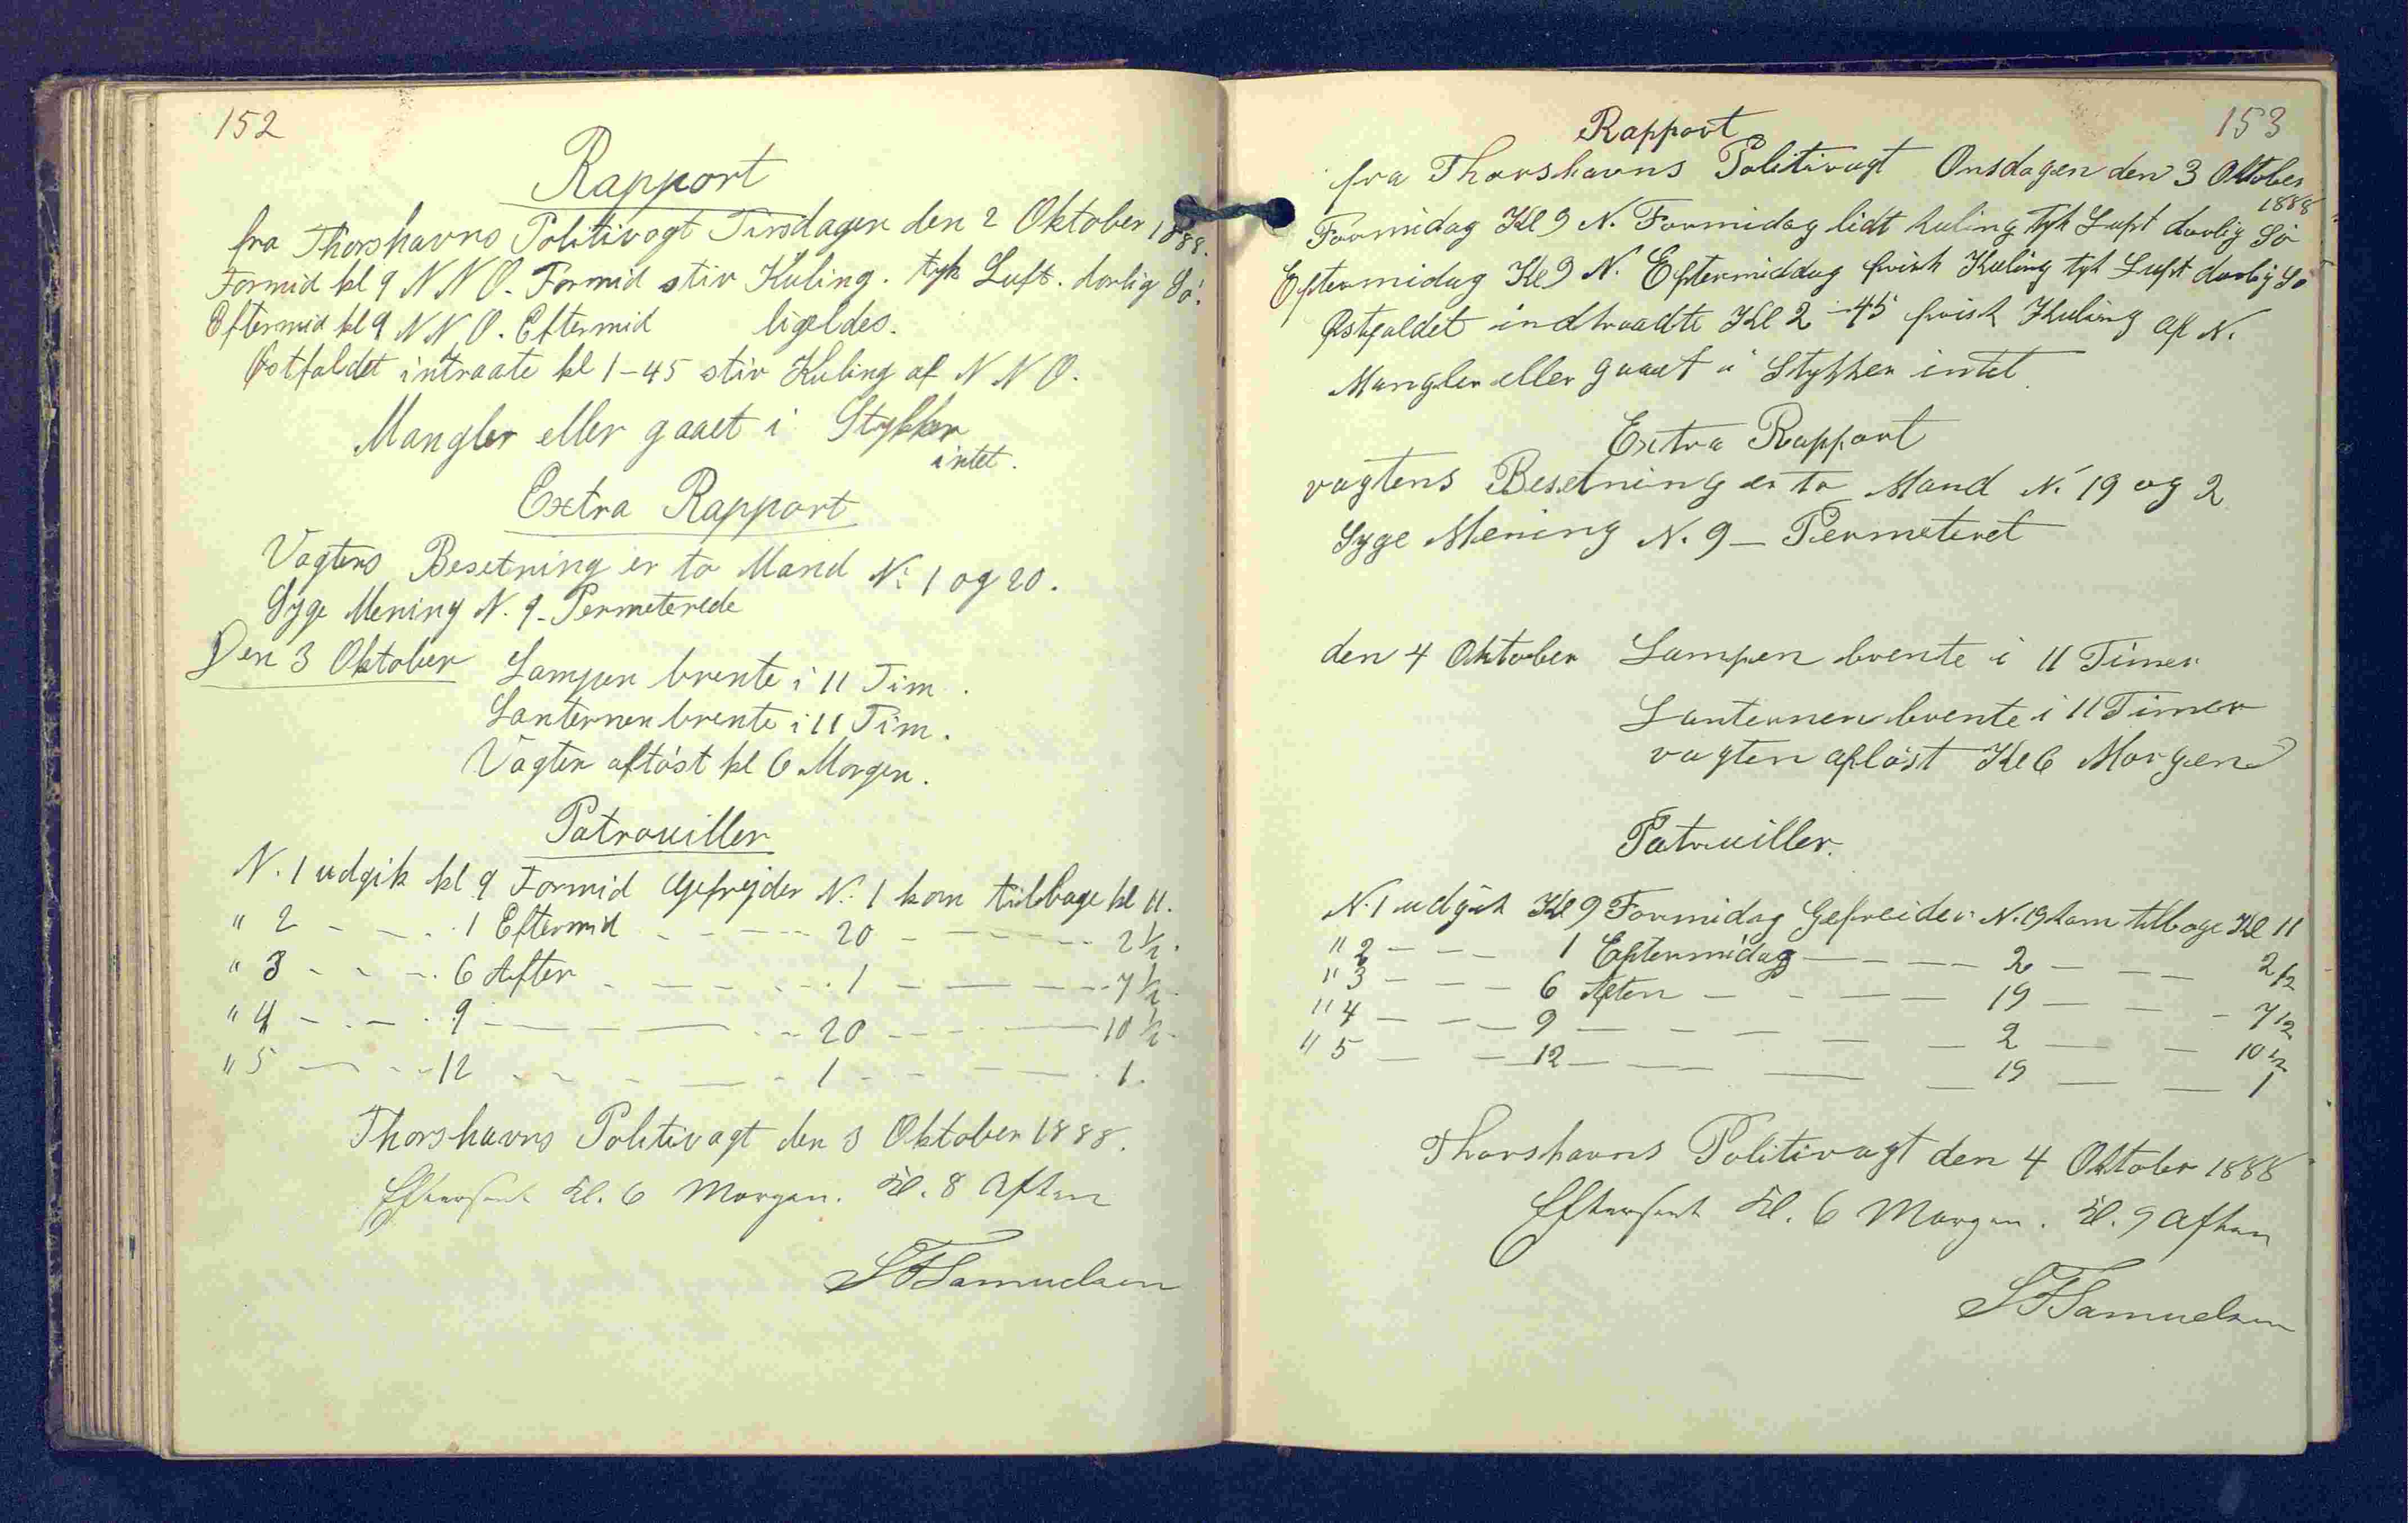 152
Rapport
fra Thorshavns Politivagt Tirsdagen den 2 Oktober 1888.
Formid kl 9 N N O. Formid stiv Kuling. tyk Luft. dorlig Sö.
Eftermid kl 9 N N O. Eftermid ligeldes.
Östfaldet intraate kl 1-45 stiv Kuling af N N O.
Mangler eller gaaet i Stykker
intet.
Extra Rapport
Vagtens Besetning er to Mand N. 1 og 20.
Syge Mening N. 9 - Permeterede
Den 3 Oktober Lampen brente i 11 Tim.
Lanternen brente i 11 Tim.
Vagten aflöst kl 6 Morgen.
Patrouiller
N. 1 udgik kl 9 Formid Gefrejder N. 1 kom tilbage kl 11.
" 2 - - - 1 Eftermid - - - 20 - - - 2 1/2.
" 3 - - - 6 Aften - - - 1 - - - 7 1/2
" 4 - - - 9 - - - 20 - - - 10 1/2
" 5 - - - 12 - - - 1 - - - 1.
Thorshavns Politivagt den 3 Oktober 1888.
Efterseet Kl. 6 Morgen. Kl. 8 Aften
SFSamuelsen
153
Rapport
fra Thorshavns Politivagt Onsdagen den 3 Oktober
1888
Formidag Kl 9 N. Formidag lidt kuling tyk Luft darlig Sö
Eftermidag Kl 9 N. Eftermiddag frisk Kuling tyk Luft darlig Sö
Östfaldet indtraadte Kl 2-45 frisk Kuling af N.
Mangler eller gaaet i Stykker intet.
Extra Rapport
vagtens Besetning er to Mand N. 19 og 2
Syge Mening N. 9 - Permeteret
den 4 Oktober Lampen brente i 11 Timer
Lanternen brente i 11 Timer
vagten aflöst Kl 6 Morgen
Patruiller.
N. 1 udgik Kl 9 Formidag Gefreider N. 19 kom tilbage Kl 11
" 2 - - - 1 Eftermidag - - - 2 - - - 2 1/2
" 3 - - - 6 Aften - - - 19 - - - 7 1/2
" 4 - - - 9 - - - 2 - - - 10 1/2
" 5 - - - 12 - - - 19 - - - 1
Thorshavns Politivagt den 4 Oktober 1888
Efterseet Kl. 6 Morgen. Kl. 9 Aften
SFSamuelsen